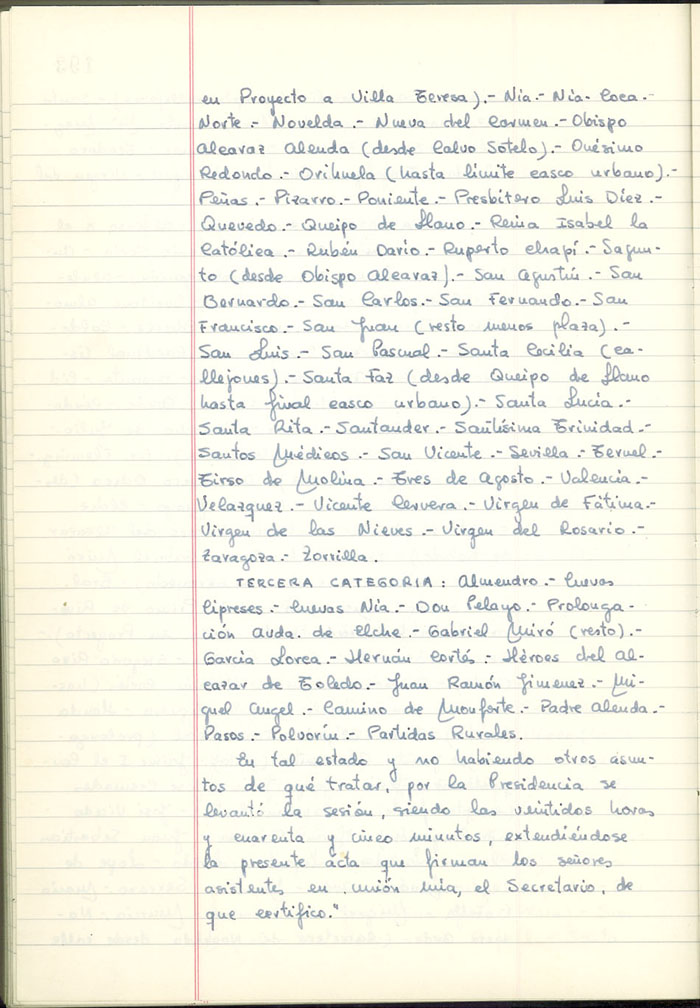 en Proyecto a Villa Teresa).- Nía.- Nía-Coca.-
Norte.- Novelda.- Nueva del Carmen.- Obispo
Alcaraz Alenda (desde Calvo Sotelo).- Onésimo
Redondo.- Orihuela (hasta límite casco urbano).-
Peñas.- Pizarro.- Poniente.- Presbítero Luis Díez.-
Quevedo.- Queipo de Llano.- Reina Isabel la
Católica.- Rubén Darío.- Ruperto Chapí.- Sagun-
to (desde Obispo Alcaraz).- San Agustín.- San
Bernardo.- San Carlos.- San Fernando.- San
Francisco.- San Juan (resto menos plaza).-
San Luis.- San Pascual.- Santa Cecilia (ca-
llejones).- Santa Faz (desde Queipo de Llano
hasta final casco urbano).- Santa Lucía.-
Santa Rita.- Santander.- Santísima Trinidad.-
Santos Médicos.- San Vicente.- Sevilla.- Teruel.-
Tirso de Molina.- Tres de Agosto.- Valencia.-
Velazquez.- Vicente Cervera.- Virgen de Fátima.-
Virgen de las Nieves.- Virgen del Rosario.-
Zaragoza.- Zorrilla.
TERCERA CATEGORIA: Almendro.- Cuevas
Cipreses.- Cuevas Nía.- Don Pelayo.- Prolonga-
ción Avda. de Elche.- Gabriel Miró (resto).-
García Lorca.- Hernán Cortés.- Héroes del Al-
cazar de Toledo.- Juan Ramón Jimenez.- Mi-
guel Angel.- Camino de Monforte.- Padre Alenda.-
Pasos.- Polvorín.- Partidas Rurales.
En tal estado y no habiendo otros asun-
tos de qué tratar, por la Presidencia se
levantó la sesión, siendo las veintidos horas
y cuarenta y cinco minutos, extendiéndose
la presente acta que firman los señores
asistentes en unión mia, el Secretario, de
que certifico."